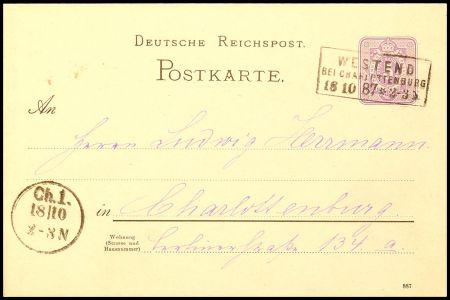 DEUTSCHE REICHSPOST.
POSTKARTE.
WESTEND
BEI CHARLOTTENBURG
18 10 87 * 2-3 N
An
Herrn Ludwig Herrmann.
Ch. 1.
18/10
2-3 N
in Charlottenburg.
Wohnung
(Strasse und
Hausnummer)
Berlinerstraße 134 a.
887